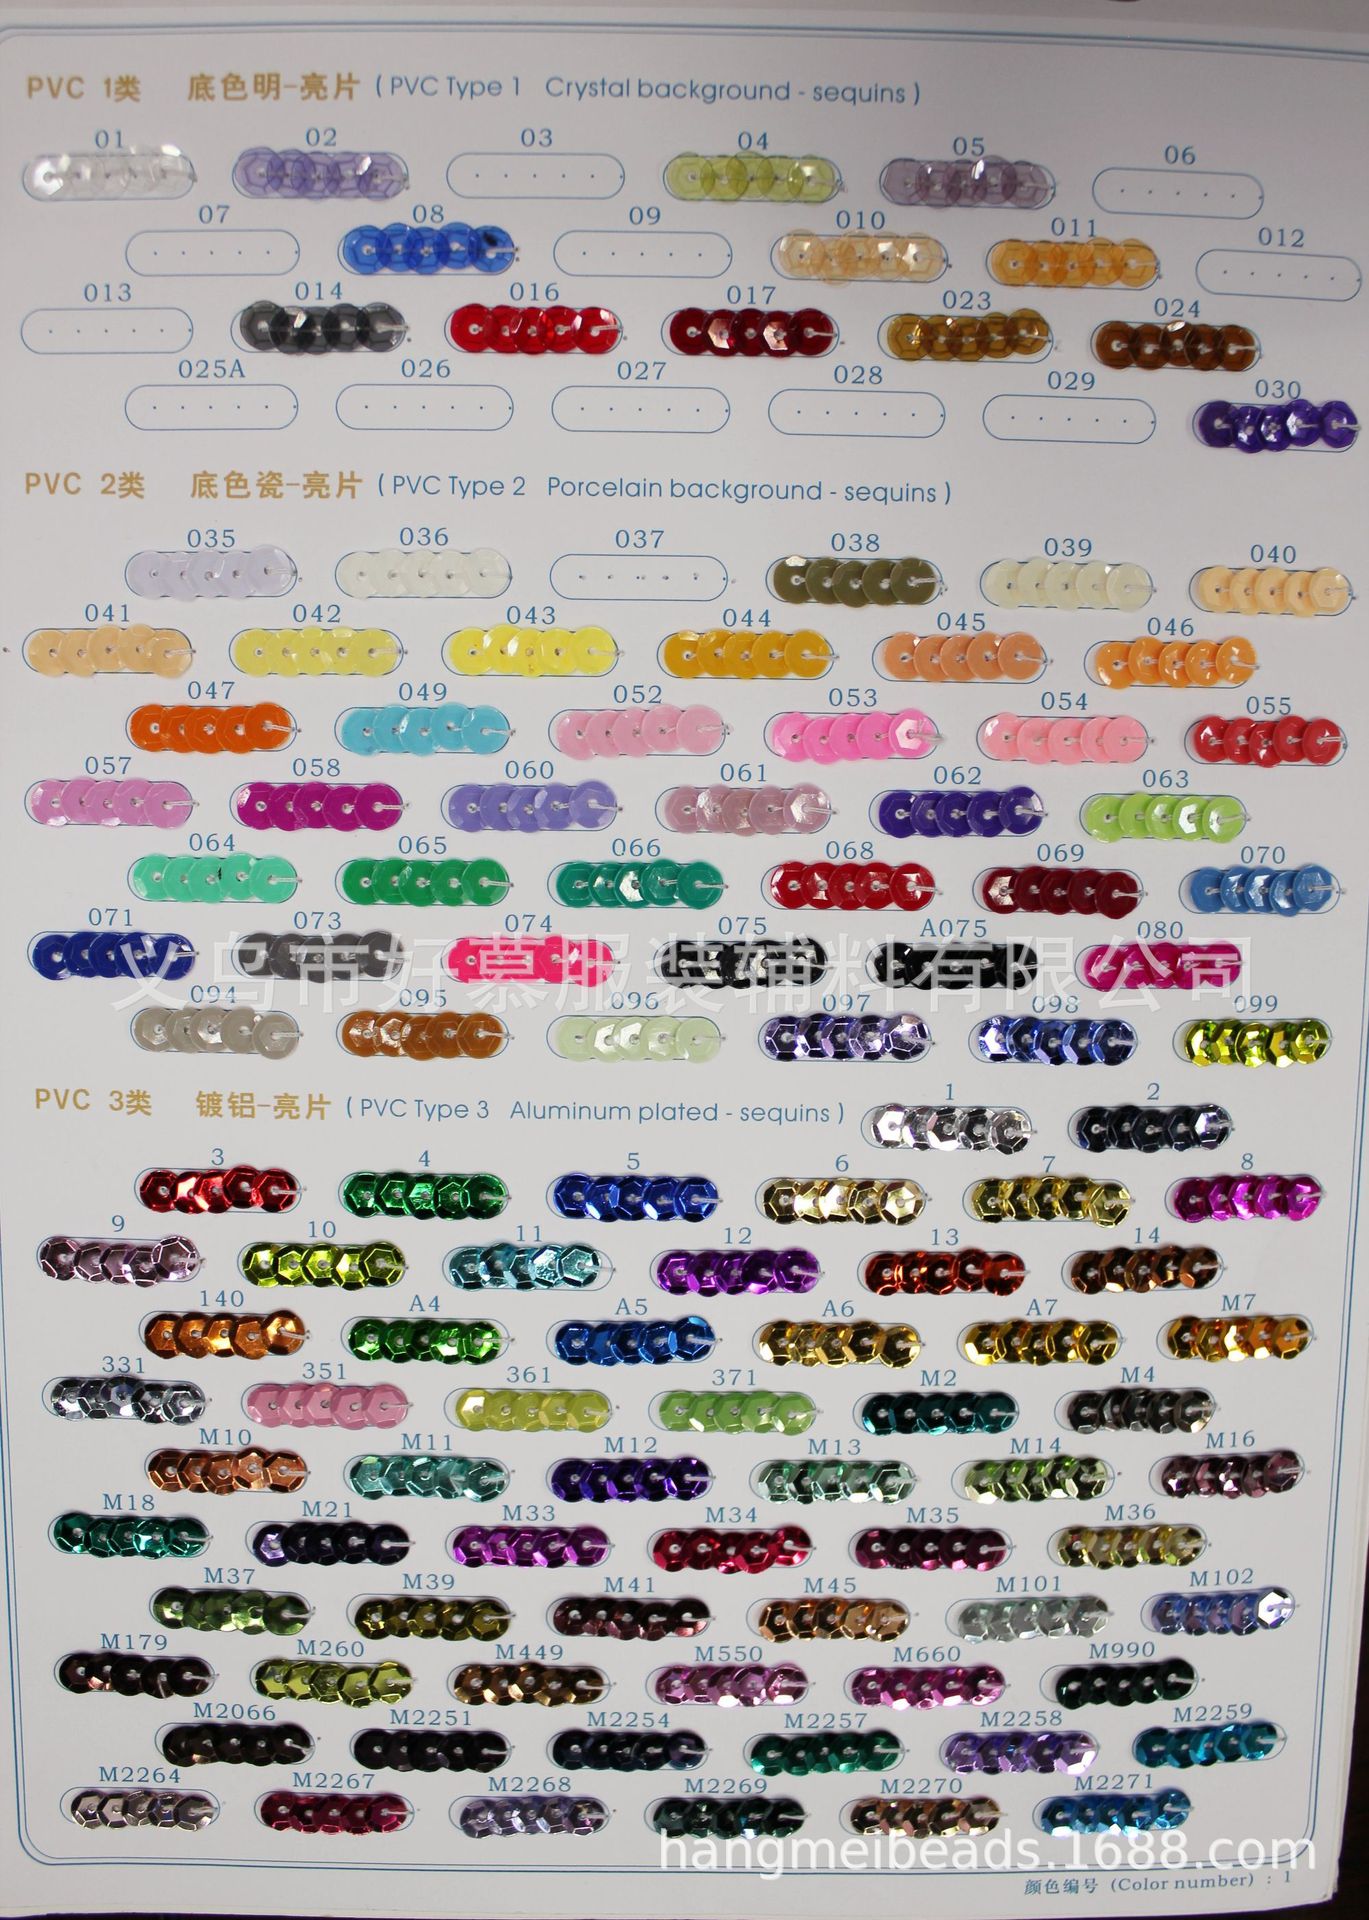 PVC 1类 底色明-亮片 (PVC Type 1 Crystal background - sequins)
01 02 03 04 05 06
07 08 09 010 011 012
013 014 016 017 023 024
025A 026 027 028 029 030
PVC 2类 底色瓷-亮片 (PVC Type 2 Porcelain background - sequins)
035 036 037 038 039 040
041 042 043 044 045 046
047 049 052 053 054 055
057 058 060 061 062 063
064 065 066 068 069 070
071 073 074 075 A075 080
义乌市好慕服装辅料有限公司
094 095 096 097 098 099
PVC 3类 镀铝-亮片 (PVC Type 3 Aluminum plated - sequins)
1 2
3 4 5 6 7 8
9 10 11 12 13 14
140 A4 A5 A6 A7 M7
331 351 361 371 M2 M4
M10 M11 M12 M13 M14 M16
M18 M21 M33 M34 M35 M36
M37 M39 M41 M45 M101 M102
M179 M260 M449 M550 M660 M990
M2066 M2251 M2254 M2257 M2258 M2259
M2264 M2267 M2268 M2269 M2270 M2271
hangmeibeads.1688.com
颜色编号 (Color number) : 1